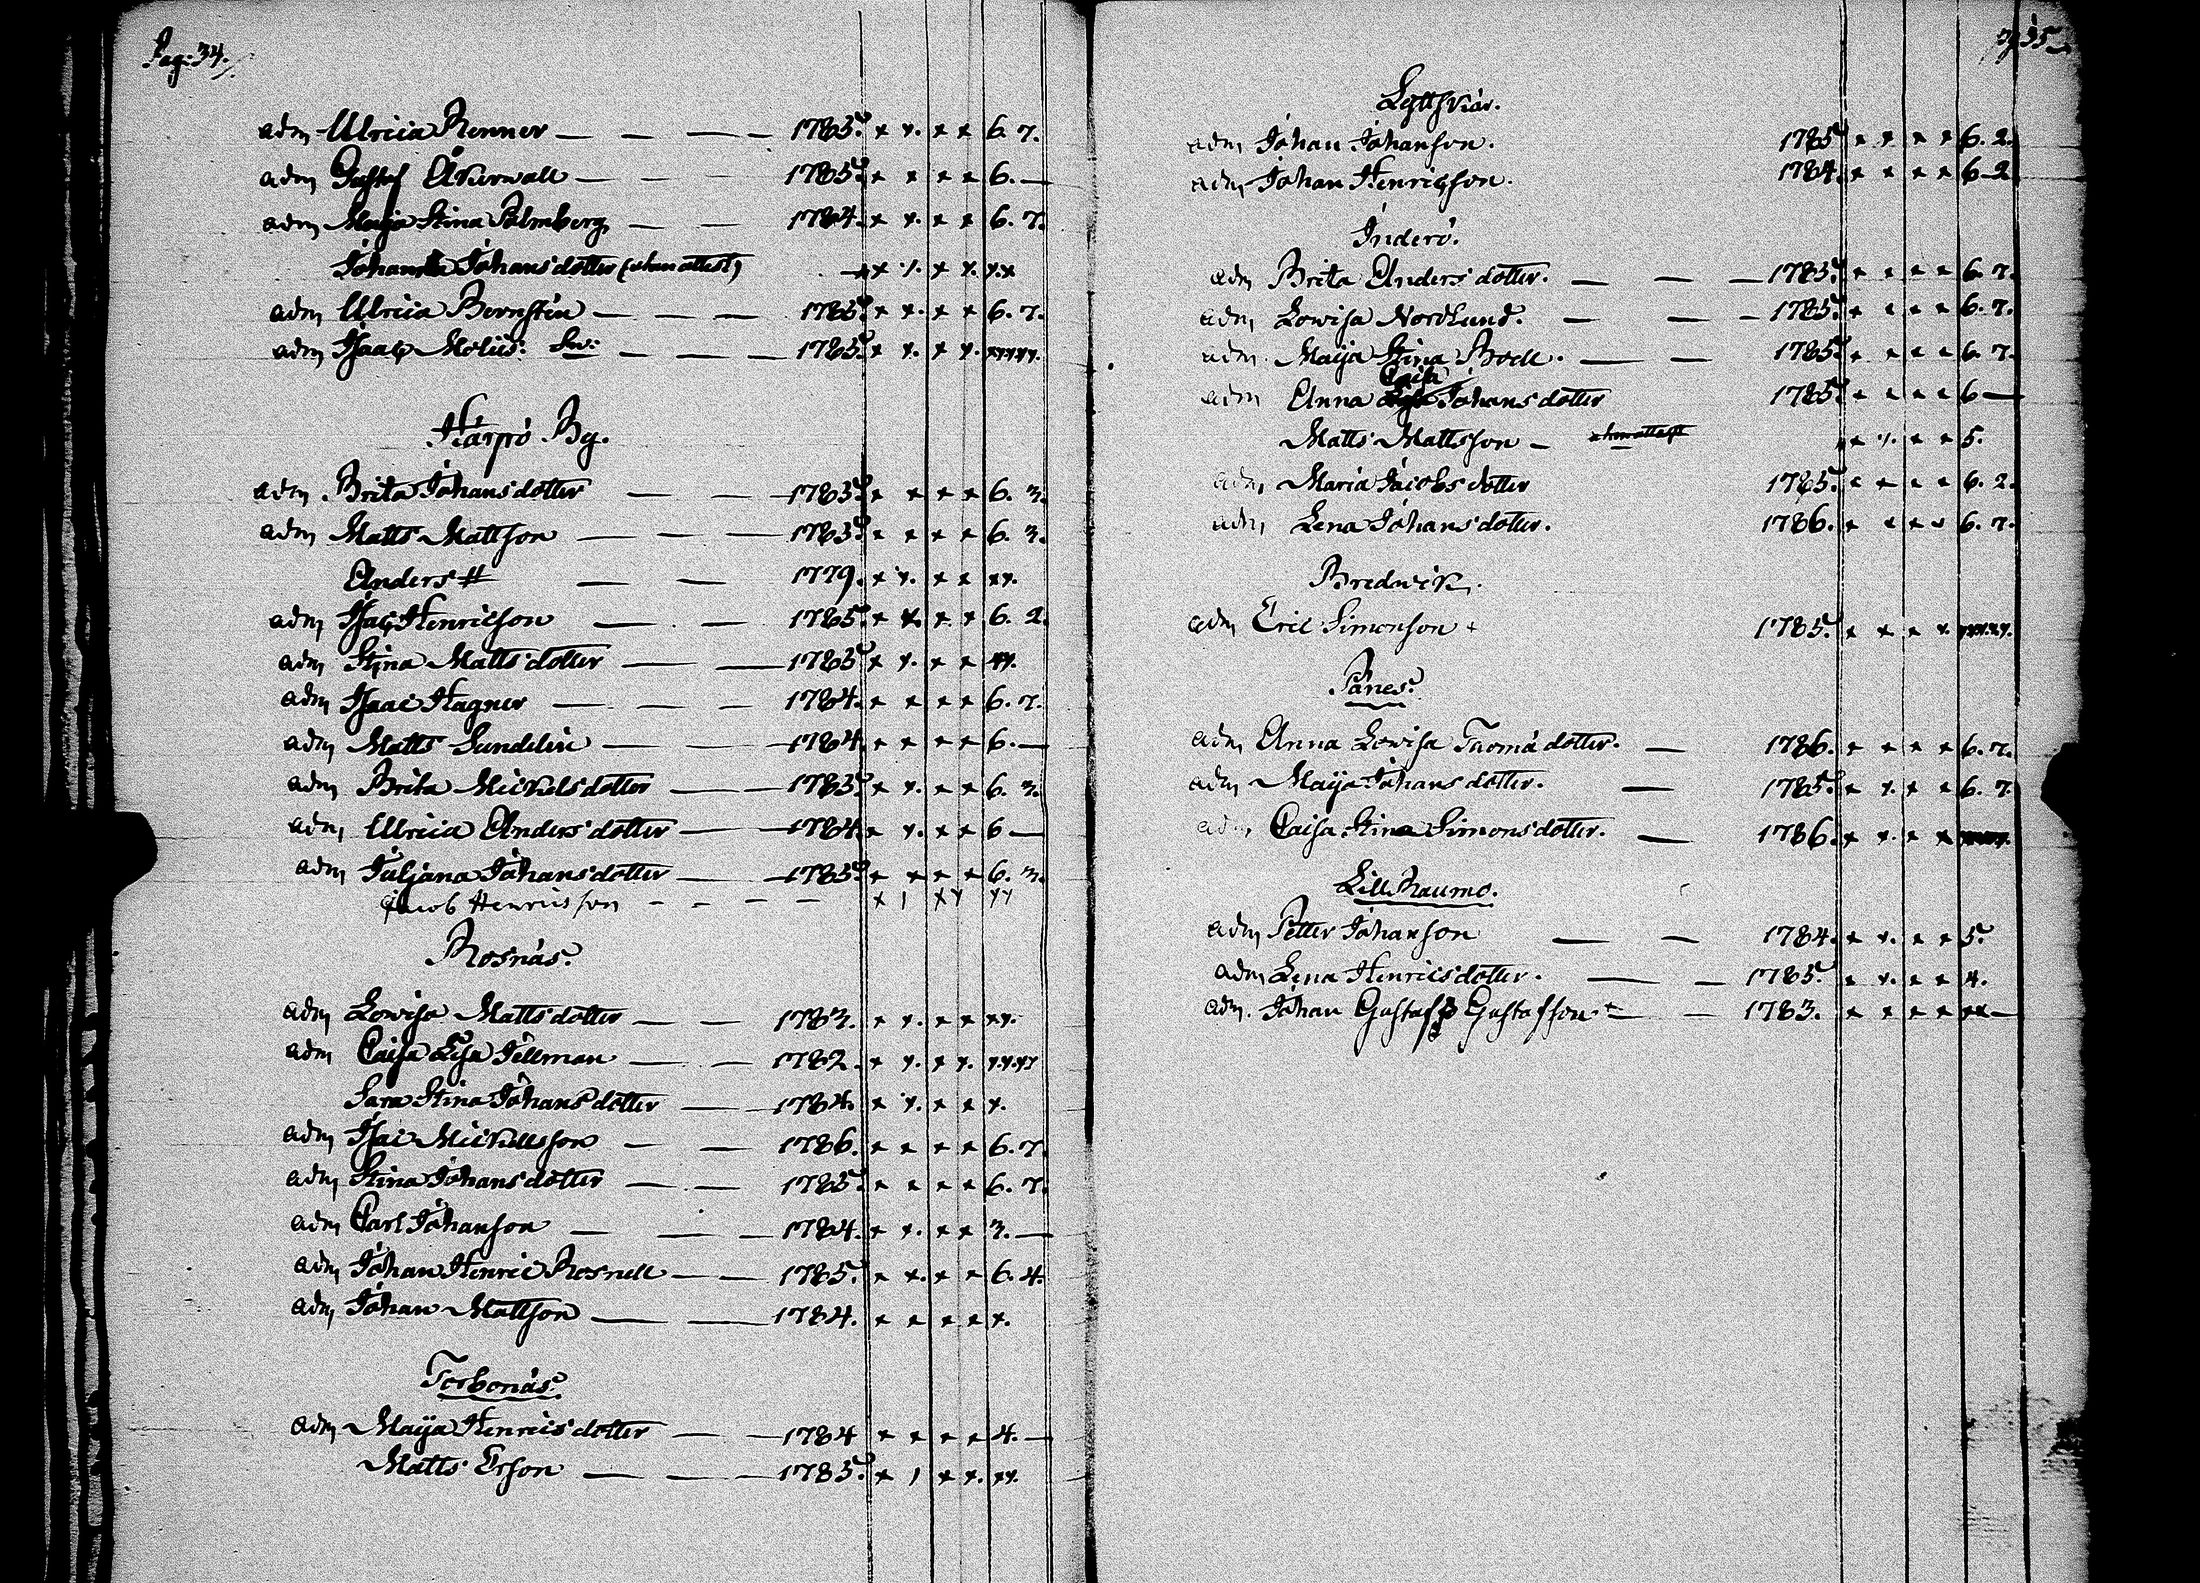 Pag: 34.
adm Ulrica Renner — — — 1785. x x. x x 6. 7.
adm Gustaf Åkerwall — — — 1785. x x x x 6. —
adm Maja Stina Palmberg — — 1784. x x. x x 6. 7.
Johanna Johansdotter (utan attest) — x x x. x x. x.x
adm Ulrica Bernsten — — — 1785. x x. x x 6. 7.
adm Isaac Molius: — — — 1785. x x. x x. xxxx.
Härpö By.
adm Brita Johansdotter — — 1785. x x x x 6. 3.
adm Matts Mattson — — — 1785. x x x x 6. 3.
Anders # — — 1779. x x. x x xx.
adm Isac Henricson — — 1785. x x. x x 6. 2.
adm Stina Mattsdotter — — 1785 x x. x x xx.
adm Isaac Hagner — — — 1784. x x x x 6. 7.
adm Matts Sundelin — — — 1784 x x x x 6. —
adm Brita Mickelsdotter — — 1785. x x. x x 6. 3.
adm Ulrica Andersdotter — — 1784. x x. x x 6 —
adm Juljana Johansdotter — — 1785. x x x x 6. 3.
Jacob Henricsson - - - - x 1 x x x x
Rosnäs.
adm Lowisa Mattsdotter — — 1783. x x. x x xx.
adm Caisa Lisa Tellman — — 1782. x x. x x. x.x.xx
Sara Stina Johansdotter — 1784. x x. x x x.
adm Isac Mickellsson — — 1786. x x x x 6. 7.
adm Stina Johansdotter — — 1785. x x x x 6. 7.
adm Carl Johanson — — — 1784. x x. x x 3. —
adm Johan Henric Rosnell — — 1785. x x. x x 6. 4.
adm Johan Mattson — — 1784. x x x x x.
Torbonäs.
adm Maija Henricsdotter — — 1784 x x x x 4. —
Matts Erson — — — 1785. x 1 x x. xx.
p. 35
adm Johan Johanson. 1785 x x x x 6. 2.
adm Johan Henricsson. 1784. x x x x 6 2
Inderö.
adm Brita Andersdotter. — — — 1785. x x x x 6. 7.
adm Lowisa Nordlund. — — — 1785. x x x x 6. 7.
adm. Maija Stina Boell. — — 1785. x x x x 6. 7.
adm Anna Caisa Johansdotter 1785. x x x x 6 —
Matts Mattsson — utan attest x x. x x 5.
adm Maria Jacobsdotter 1785. x x x x 6. 2.
adm Lena Johansdotter. 1786. x x x x 6. 7.
Bredwik.
adm Eric Simonson + 1785. x x x x. xxxxx.
Pånes.
adm Anna Lowisa Thomädotter. — 1786. x x x x 6. 7.
adm Maija Johansdotter. — 1785. x x. x x 6. 7.
adm Caisa Stina Simonsdotter. — 1786. x x. x x
Lill Raumo.
adm Petter Johanson — — 1784. x x. x x 5.
adm Lena Henricsdotter. — — 1785. x x. x x 4.
adm. Johan Gustaf Gustafson + — — 1783. x x x x xx —